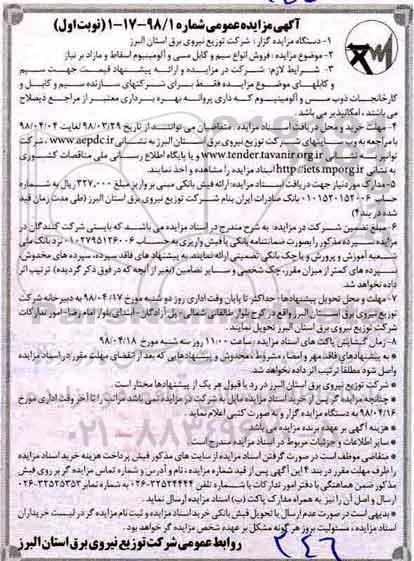 آگهی مزایده عمومی شماره ۹۸/۱-۱۷-۱ (نوبت اول)
۱- دستگاه مزایده گزار: شرکت توزیع نیروی برق استان البرز
۲- موضوع مزایده: فروش انواع سیم و کابل مسی و آلومینیوم اسقاط و مازاد بر نیاز
۳- شرایط لازم: شرکت در مزایده و ارائه پیشنهاد قیمت جهت سیم و کابلهای موضوع مزایده فقط برای شرکتهای سازنده سیم و کابل و
کارخانجات ذوب مسی و آلومینیوم که داری پروانه بهره برداری معتبر از مراجع ذیصلاح می باشند، امکانپذیر می باشد.
۴- مهلت خرید و محل دریافت اسناد مزایده: متقاضیان می توانند از تاریخ ۹۸/۰۳/۲۹ لغایت ۹۸/۰۴/۰۴
با مراجعه به وب سایتهای شرکت توزیع نیروی برق استان البرز به نشانی www.aepdc.ir ، شرکت
توانیر به نشانی www.tender.tavanir.org.ir و یا پایگاه اطلاع رسانی ملی مناقصات کشوری
به نشانی http://iets.mporg.ir اسناد مزایده را مشاهده و اخذ نمایند.
۵- مدارک مورد نیاز جهت دریافت اسناد مزایده: ارائه فیش بانکی مبنی بر واریز مبلغ ۳۲۷,۰۰۰ ریال به شماره
حساب ۰۱۰۱۵۳۰۱۵۲۰۰۶ بانک صادرات ایران بنام شرکت توزیع نیروی برق استان البرز (طی مدت زمان قید
شده در بند ۴)
۶- مبلغ تضمین شرکت در مزایده: به شرح مندرج در اسناد مزایده می باشد که بایستی شرکت کنندگان در
مزایده سپرده مذکور را بصورت ضمانتنامه بانکی یا فیش واریزی به حساب ۰۱۰۲۷۹۵۱۲۶۰۰۶ نزد بانک ملی
شعبه آموزش و پرورش و یا چک بانکی تضمینی ارائه نمایند. به پیشنهاد های فاقد سپرده، سپرده های مخدوش،
سپرده های کمتر از میزان مقرر، چک شخصی و سایر تضامین (بغیر از آنچه که در فوق ذکر گردیده) ترتیب اثر
داده نخواهد شد.
۷- مهلت و محل تحویل پیشنهادها: حداکثر تا پایان وقت اداری روز دو شنبه مورخ ۹۸/۰۴/۱۷ به دبیرخانه شرکت
توزیع نیروی برق استان البرز واقع در کرج بلوار طالقانی شمالی- پل آزادگان- ابتدای بلوار امام رضا- امور تدارکات
شرکت توزیع نیروی برق استان البرز تحویل نمایند.
۸- زمان گشایش پاکت های اسناد مزایده: ساعت ۱۱:۰۰ روز سه شنبه مورخ ۹۸/۰۴/۱۸
* به پیشنهادهای فاقد مهر و امضا، مشروط، مخدوش و پیشنهادهایی که بعد از انقضای مهلت مقرر در اسناد مزایده
واصل شود مطلقا ترتیب اثر داده نخواهد شد.
* شرکت توزیع نیروی برق استان البرز در رد یا قبول هر یک از پیشنهادها مختار است.
* چنانچه مزایده گر پس از خرید اسناد مزایده مایل به شرکت در مزایده نمی باشد مراتب را تا آخر وقت اداری مورخ
۹۸/۰۴/۱۶ به دستگاه مزایده گزار و به صورت کتبی اعلام نماید.
* هزینه آگهی بر عهده برنده مزایده می باشد.
* سایر اطلاعات و جزئیات مربوط در اسناد مزایده مندرج است.
* متقاضی موظف است در صورت گرفتن اسناد مزایده از سایت های مذکور فیش پرداخت هزینه خرید اسناد مزایده
را ظرف مهلت مقرر در بند ۴ این آگهی پس از قید شماره مزایده، نام و آدرس و شماره تماس مزایده گر بر روی فیش
مذکور ضمن هماهنگی با دفتر امور تدارکات با شماره تلفن ۳۲۵۲۴۴۴۴-۰۲۶ به شماره نمابر ۳۲۵۲۵۳۵۳-۰۲۶
ارسال و اصل آن را نیز به همراه مدارک پاکت (ب) اسناد مزایده ارسال نماید.
* بدیهی است در صورت عدم ارسال یا تحویل فیش بانکی خرید اسناد مزایده و ثبت نام مزایده گر در لیست خریداران
اسناد مزایده، مسئولیت بروز هر گونه مشکل بر عهده شخص مزایده گر خواهد بود.
روابط عمومی شرکت توزیع نیروی برق استان البرز
۲۴۶
۰۲۱-۸۸۳۴۹۶